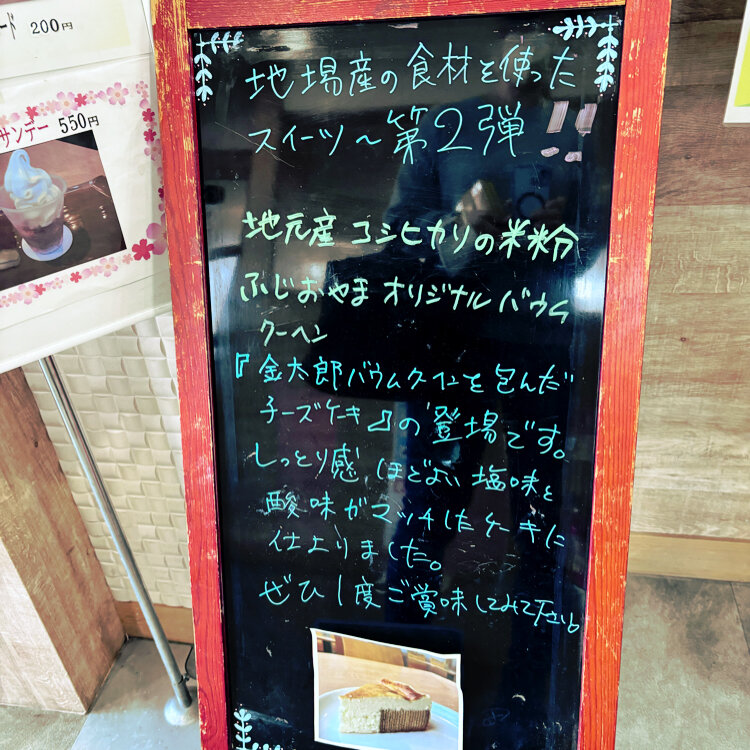 ード 200円
サンデー 550円
地場産の食材を使った
スイーツ〜第2弾!!
地元産 コシヒカリの米粉
ふじおやま オリジナル バウム
クーヘン
『金太郎バウムクーヘンを包んだ
チーズケーキ』の登場です。
しっとり感、ほどよい塩味と
酸味がマッチしたケーキに
仕上りました。
ぜひ1度ご賞味してみて下さい